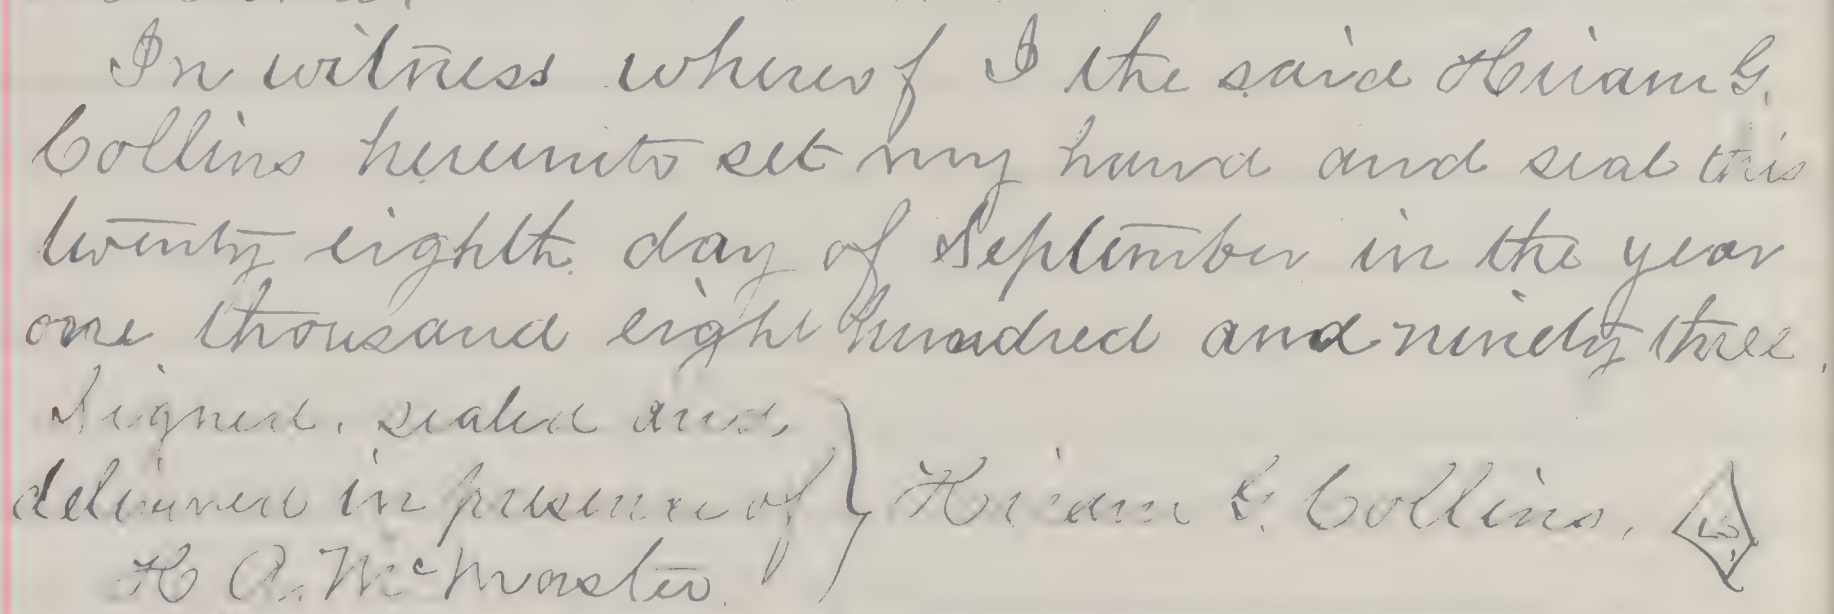 In witness whereof I the said Hiram G.
Collins hereunto set my hand and seal this
twenty eighth day of September in the year
one thousand eight hundred and ninety three.
Signed, sealed and
delivered in presence of } Hiram G. Collins. L.S.
H A. McMaster.